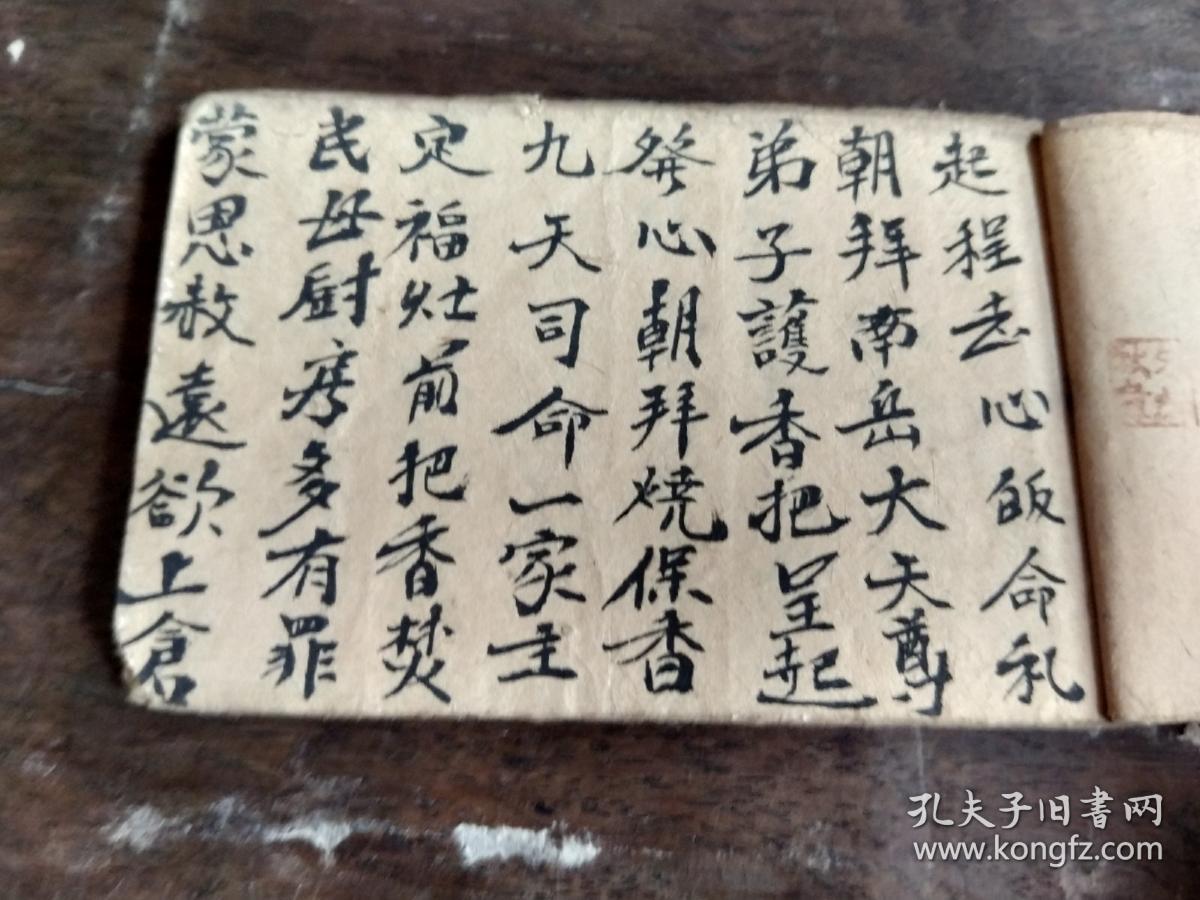 起程志心皈命礼
朝拜南岳大天尊
弟子護香把呈起
發心朝拜燒保香
九天司命一家主
定福灶前把香焚
民母廚房多有罪
蒙恩赦遠欲上倉
孔夫子旧书网
www.kongfz.com